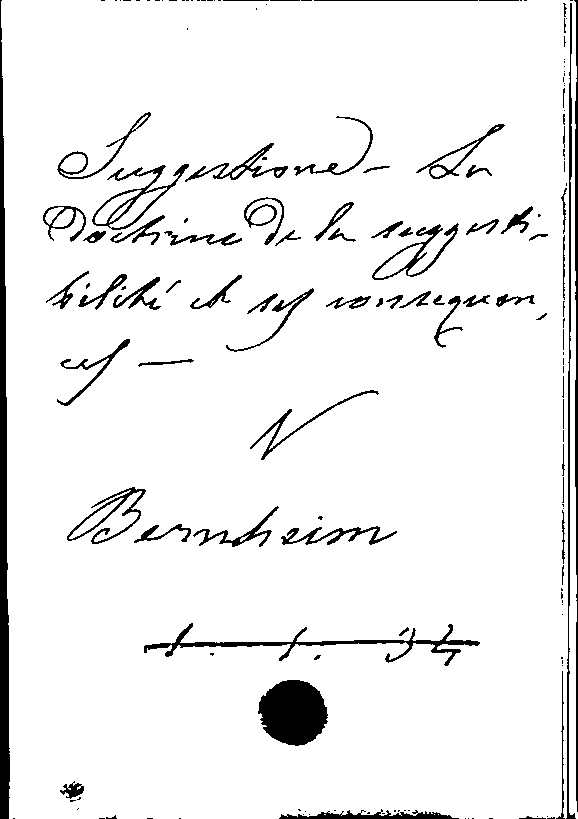 Suggestione - La
Doctrine de la suggesti-
bilité et ses consequen,
ces —
V
Bernheim
1. 1. 34